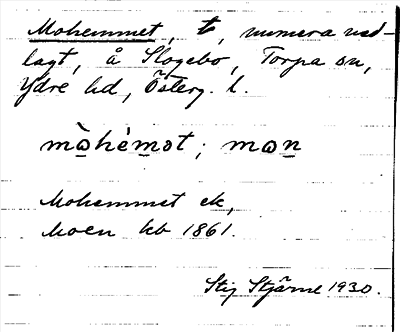 Mohemmet, t, numera ned-
lagt, å Slogebo, Torpa sn,
Ydre hd, Österg. l.
mòhémət; mon
Mohemmet ek,
Moen kb 1861.
Stig Stjärne 1930.